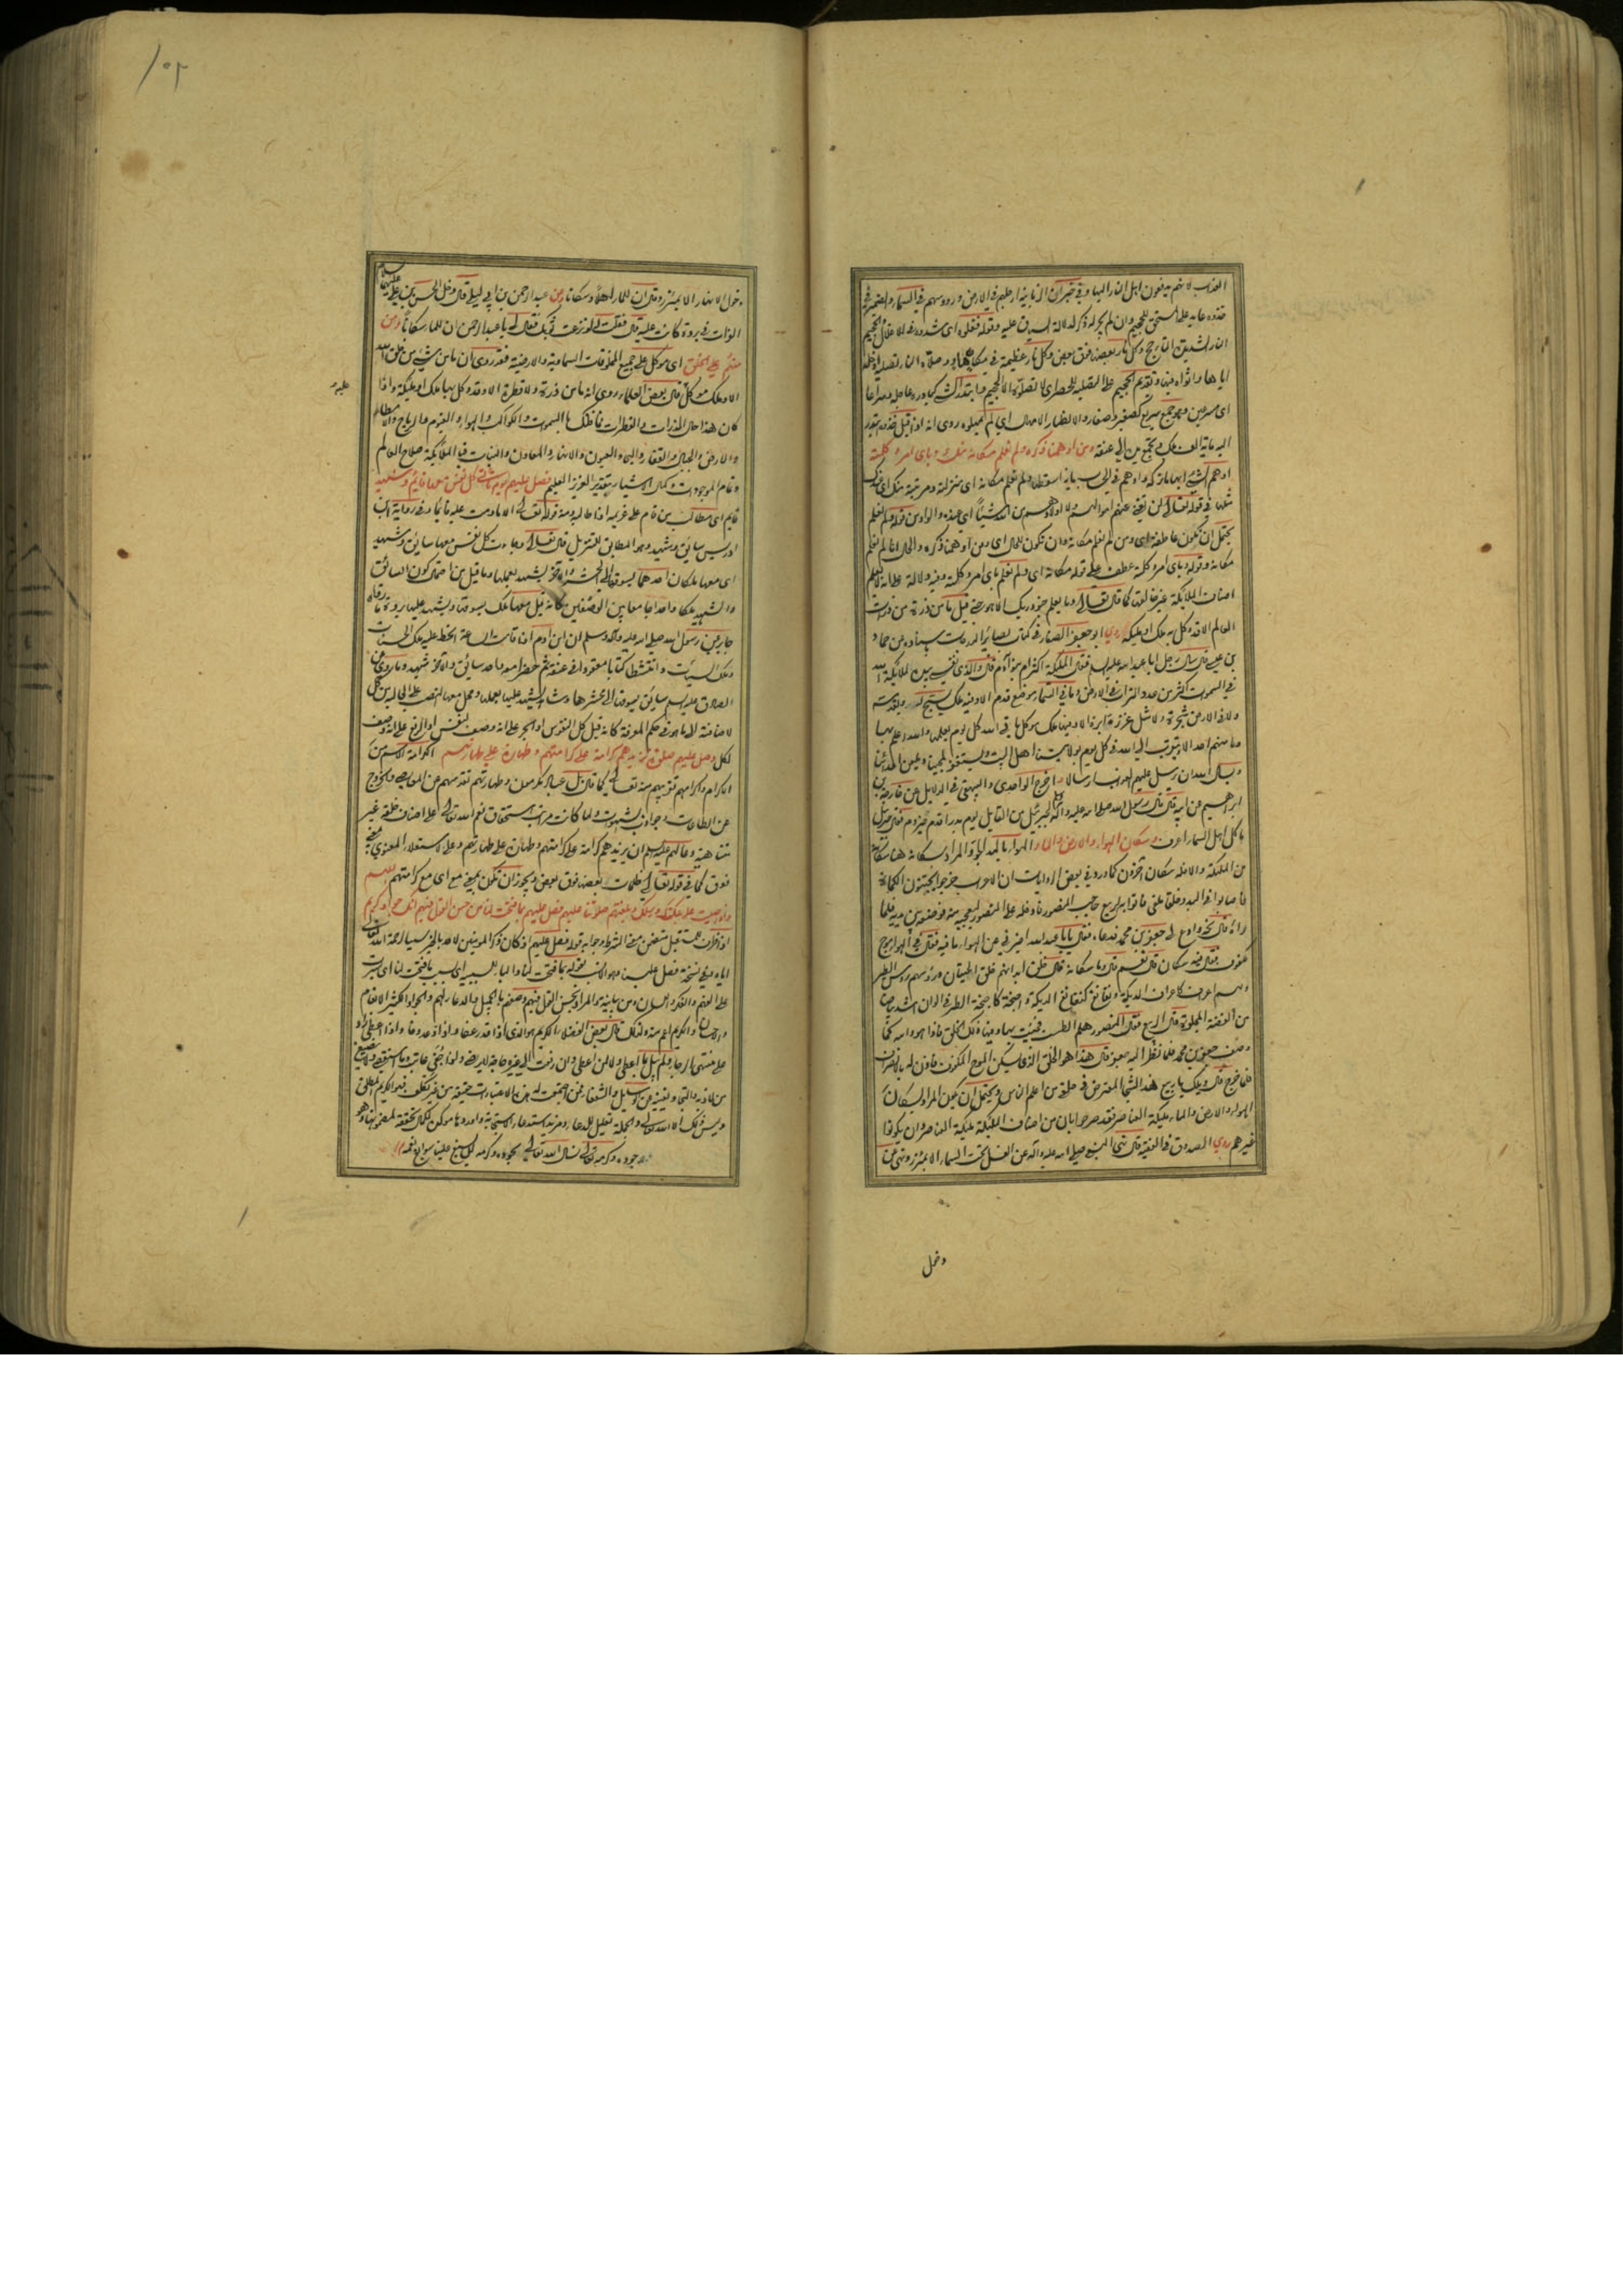 العذاب لانهم يدفعون اهل النار اليها وفي خبر ان الزبانية ارجلهم في الارض ورؤوسهم في السماء والضمير في
خذوه عايد على المستحق للجحيم وان لم يجر له ذكر لدلالة السياق عليه وقوله فغلوه اي شدوه في الاغلال والجحيم
النار الشديدة التاجج وكل نار بعضها فوق بعض وكل نار عظيمة في مهواة وصلاه النار تصلية ادخله
اياها واثواه فيها وتقديم الجحيم على التصلية للحصر اي لا تصلوه الا الجحيم وابتدره الشيء
اي مسرعين وهو جمع سريع كصغير وصغار والانظار الامهال اي لم يمهلوه روي انه اذا قيل خذوه يبتدر
اليه مائة الف ملك وتجمع يديه الى عنقه ومن اوهمنا ذكره ولم نعلم مكانه منك وباي امر وكلته
اوهم الشيء ايهاما تركه واوهم في الحساب ماية اسقطها ولم نعلم مكانه اي منزلته ومرتبته منك اي عندك
مثلها في قوله تعالى لن تغني عنهم اموالهم ولا اولادهم من الله شيئا اي عنده والواو من قوله ولم نعلم
يحتمل ان تكون عاطفة اي ومن لم نعلم مكانه وان تكون للحال اي ومن اوهمنا ذكره والحال انا لم نعلم
مكانه وقوله وباي امر وكلته عطف على قوله مكانه اي ولم نعلم باي امر وكلته وفيه دلالة على انه لا يعلم
اصناف الملائكة غير خالقها كما قال تعالى وما يعلم جنود ربك الا هو حتى قيل ما من ذرة من ذرات
العالم الا قد وكل به ملك او ملائكة روى ابو جعفر الصفار في كتاب بصائر الدرجات بسناده عن حماد
بن عيسى قال سال رجل ابا عبد الله عليه السلام فقال الملائكة اكثر ام بنو آدم فقال والذي نفسي بيده لملائكة الله
في السموات اكثر من عدد التراب في الارض وما في السماء موضع قدم الا وفيه ملك يسبح له ويقدسه
ولا في الارض شجرة ولا مثل غرزة ابرة الا وفيها ملك موكل بها ياتي الله كل يوم يعلمها والله اعلم بها
وما منهم احد الا يتقرب الى الله في كل يوم بولايتنا اهل البيت ويستغفر لمحبينا ويلعن اعدائنا
ويسال الله ان يرسل عليهم العذاب ارسالا واخرج الواحدي والبيهقي في الدلائل عن خارجة بن
ابراهيم عن ابيه قال قال رسول الله صلى الله عليه وآله لجبرئيل من القايل يوم بدر اقدم حيزوم فقال جبرئيل
ما كل اهل السماء اعرف وسكان الهواء والارض والماء الهواء بالمد الجو والمراد بسكانه هنا سكانه
من الملئكة والا فله سكان آخرون كما ورد في بعض الروايات ان الاعراب خرجوا يجتنون الكماة
فاصابوا في البيد دخلقا ملقى فاتوا به الربيع حاجب المنصور فادخله على المنصور ليعجبه منه فوضعه بين يديه فلما
رآه قال نحه وادع لي جعفر بن محمد فدعاه فقال يا ابا عبد الله اخبرني عن الهواء ما فيه فقال في الهواء موج
مكفوف فقال فيه سكان قال نعم قال وما سكانه قال خلق ابدانهم خلق الحيتان ورؤسهم رؤس الطير
ولهم اعراف كاعراف الديكة ونغانغ كنغانغ الديكة واجنحة كاجنحة الطير في الوان اشد بياضا
من الفضة المجلوة قال الربيع فقال المنصور هلم الطست فجئت بها وفيها ذلك الخلق فاذا هو والله كما
وصف جعفر بن محمد فلما نظر اليه جعفر قال هذا هو الخلق الذي يسكن الموج المكفوف فاذن له بالانصراف
فلما خرج قال ويلك يا ربيع هذا الشجا المعترض في حلقي من اعلم الناس ويحتمل ان يكون المراد بسكان
الهواء والارض والماء ملائكة العناصر فقد صرحوا بان من اصناف الملئكة ملئكة العناصر وان يكونوا
غيرهم روى الصدوق في الفقيه قال نهى النبي صلى الله عليه وآله عن الغسل تحت السماء الا بمئزر ونهى عن
دخل
١٠٢
دخول الانهار الا بمئزر وقال ان للماء اهلا وسكانا وعن عبد الرحمن بن ابي ليلى قال دخل الحسن بن علي عليهما السلام
الفرات في بردة كانت عليه قال فقلت له لو نزعت ثوبك فقال لي يا عبد الرحمن ان للماء سكانا ومن
منهم على الخلق اي موكل على جميع المخلوقات السماوية والارضية فقد روى ان ما من شيء من خلق الله
الا وملك موكل قال بعض العلماء روى انه ما من ذرة ولا قطرة الا وقد وكل بها ملك او ملائكة واذا
عليه
كان هذا حال الذرات والقطرات فما ظنك بالسموات والكواكب والهواء والغيوم والرياح والامطار
والارض والجبال والقفار والبحار والعيون والانهار والمعادن والنبات فبالملائكة صلاح العالم
وتمام الموجودات وكمال الاشياء بتقدير العزيز العليم فصل عليهم يوم ياتي كل نفس معها قائم وشهيد
قايم اي مطالب من قام على غريمه اذا طالبه ومنه قوله تعالى الا ما دمت عليه قائما وفي رواية ابن
ادريس سائق وشهيد وهو المطابق للتنزيل قال تعالى وجاءت كل نفس معها سائق وشهيد
اي معها ملكان احدهما يسوقها الى المحشر والآخر يشهد بعملها وما قيل من احتمال كون السائق
والشهيد ملكا واحدا جامعا بين الوصفين كانه قيل معها ملك يسوقها ويشهد عليها يرده ما رواه
جابر عن رسول الله صلى الله عليه وآله وسلم ان ابن آدم اذا قامت الساعة انحط عليه ملك الحسنات
وملك السيئات وانتشطا كتابا معقودا في عنقه ثم حضرا معه واحد سائق والآخر شهيد وما روى عن
الصادق عليه السلام سائق يسوقها الى محشرها وشاهد يشهد عليها بعملها ومحل معها النصب على الحالية من كل
لاضافته الى ما هو في حكم المعرفة كانه قيل كل النفوس او الجر على انه وصف لنفس او الرفع على انه وصف
لكل وصل عليهم صلوة تزيدهم كرامة على كرامتهم وطهارة على طهارتهم الكرامة الاسم من
الاكرام واكرامهم تقريبهم منه تعالى كما قال بل عباد مكرمون وطهارتهم تقدسهم عن المعاصي والخروج
عن الطاعات وجواذب الشهوات ولما كانت مراتب استحقاق نعم الله تعالى على اصناف خلقه غير
متناهية دعا لهم عليه السلام ان يزيدهم كرامة على كرامتهم وطهارة على طهارتهم وعلى للاستعلاء المعنوي فهي
فوق كما في قوله تعالى ظلمات بعضها فوق بعض ويجوز ان تكون بمعنى مع اي مع كرامتهم اللهم
واذا صليت على ملائكتك ورسلك وبلغتهم صلوتنا عليهم فصل عليهم بما فتحت لنا من حسن القول فيهم انك جواد كريم
اذا ظرف لمستقبل متضمن معنى الشرط وجوابه قوله فصل عليهم اذ كان ذكر المؤمنين لاحد بالخير سببا لرحمة الله تعالى
اياه وفي نسخة فصل علينا وهو الانسب بقوله بما فتحت لنا والباء للسببية اي بسبب ما فتحت لنا اي يسرت
على الفهم والفكر واللسان ومن بيانية والمراد بحسن القول فيهم وصفهم بالجميل والدعاء لهم والجواد الكثير الانعام
والاحسان والكريم اعم منه ولذلك قال بعض الفضلاء الكريم هو الذي اذا قدر عفا واذا وعد وفا واذا اعطى زاد
على منتهى الرجاء ولم يبال بما اعطى ولا لمن اعطى وان رفعت الى غيره حاجة لا يرضى واذا جفي عاتب وما استقصى ولا يضيع
من لاذ به والتجأ ويغنيه عن الوسايل والشفعاء فمن اجتمعت له هذه الاعتبارات حقيقة من غير تكلف فهو الكريم المطلق
وليس ذلك الا الله تعالى والجملة تعليل للدعاء ومزيد استدعاء الاستجابة واوردها موكدة لكمال تحققه لمضمونها وهو
جوده وكرمه تعالى نسال الله تعالى بجوده وكرمه ان يسبغ علينا سوابغ نعمه